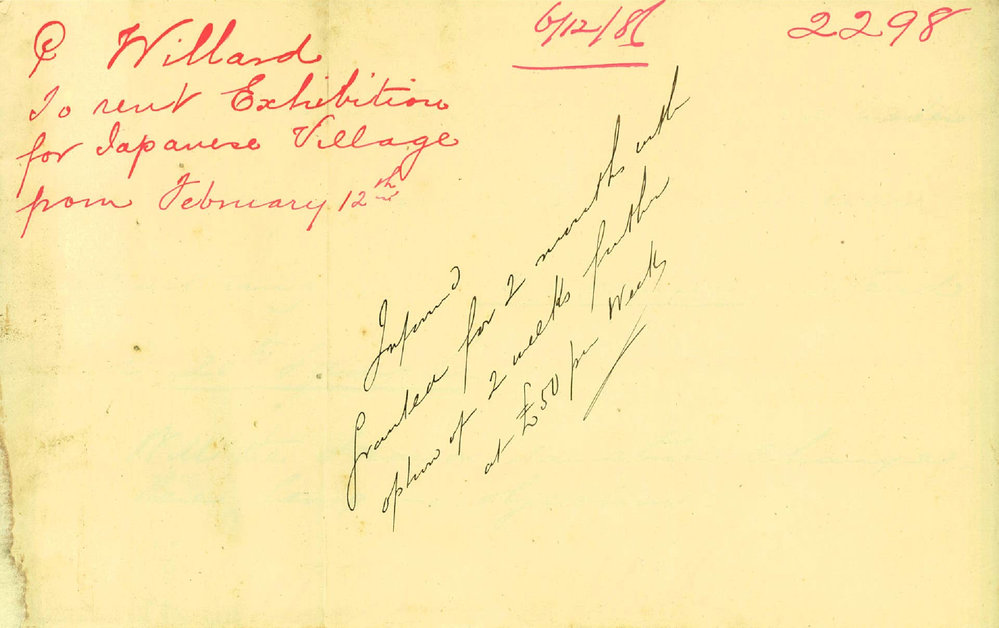 P Willard
To rent Exhibition
for Japanese Village
from February 12th
6/12/86
2298
Inform
Granted for 2 months with
option of 2 weeks further
at £50 per Week